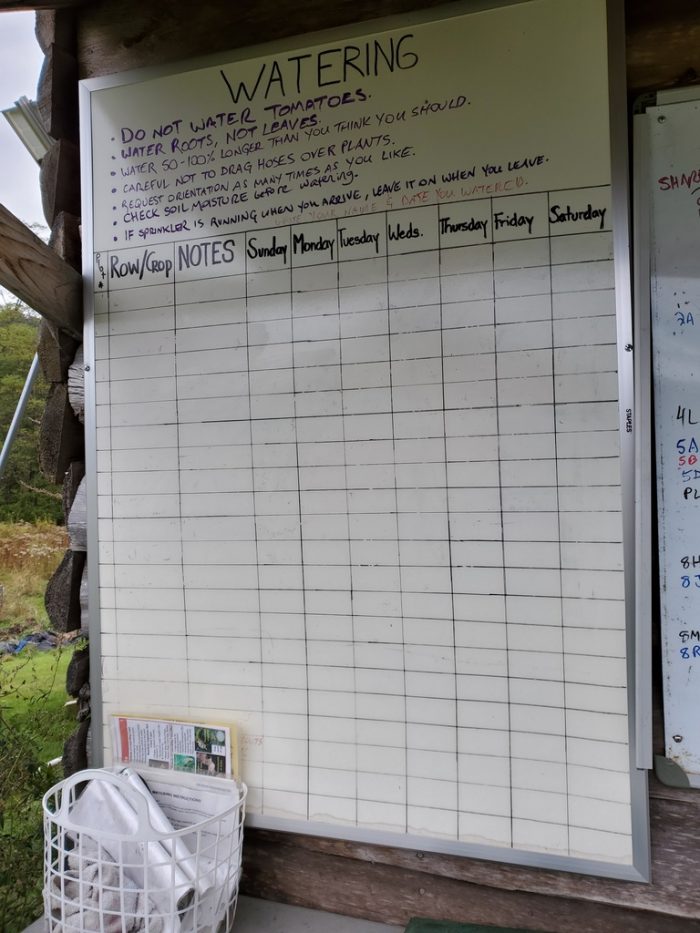 WATERING
• DO NOT WATER TOMATOES.
• WATER ROOTS, NOT LEAVES.
• WATER 50-100% LONGER THAN YOU THINK YOU SHOULD.
• CAREFUL NOT TO DRAG HOSES OVER PLANTS.
• REQUEST ORIENTATION AS MANY TIMES AS YOU LIKE.
• CHECK SOIL MOISTURE before watering.
• IF SPRINKLER IS RUNNING WHEN YOU ARRIVE, LEAVE IT ON WHEN YOU LEAVE.
YOUR NAME & DATE YOU WATERED.
Row/Crop NOTES Sunday Monday Tuesday Weds. Thursday Friday Saturday
STAPLES
4L
5A
5B
5D
PL
8H
8J
8M
8R
WATERING INSTRUCTIONS